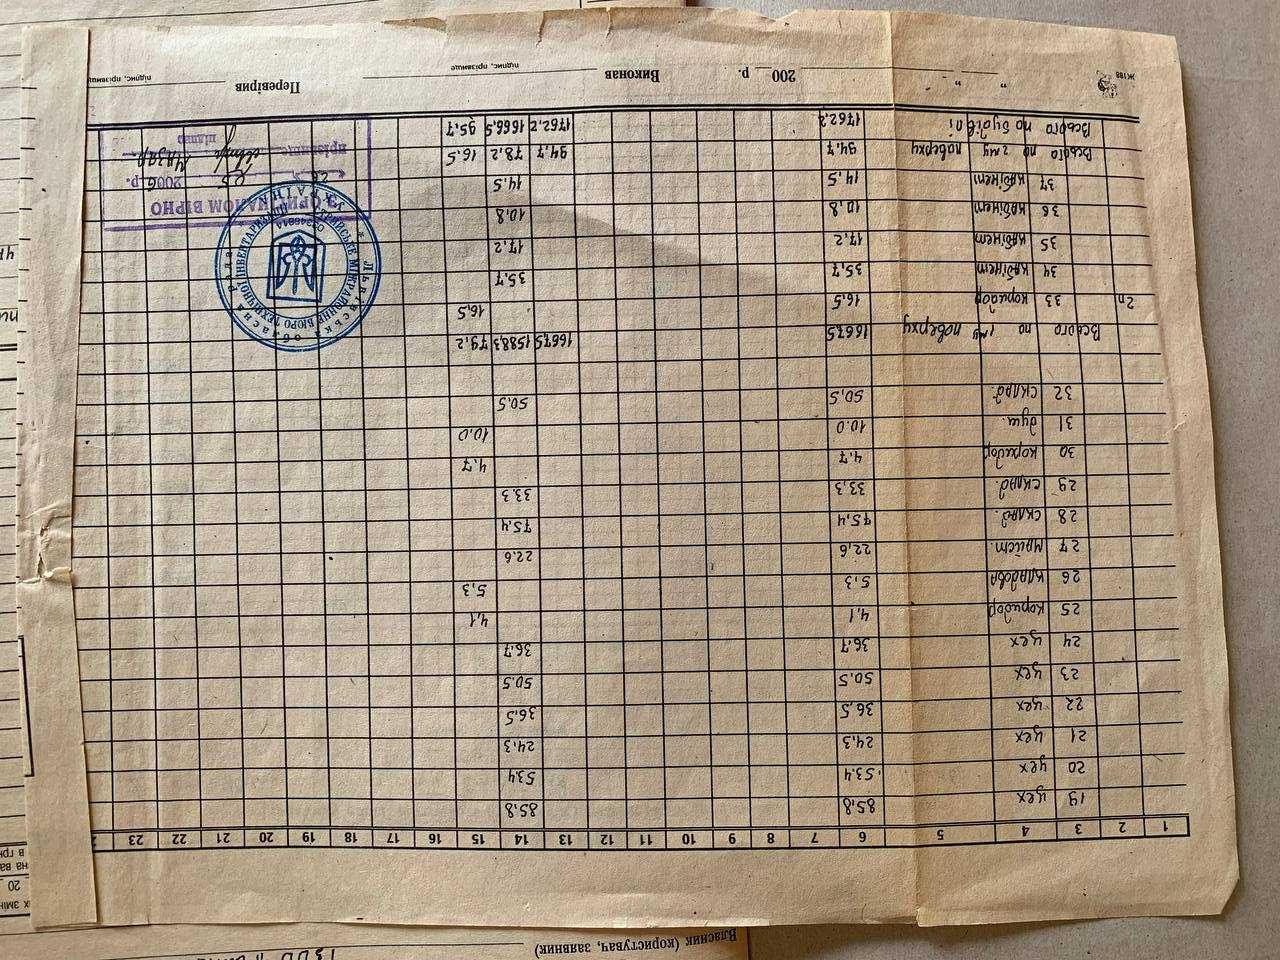 1 2 3 4 5 6 7 8 9 10 11 12 13 14 15 16 17 18 19 20 21 22 23
19 цех 85,8 85.8
20 цех 53.4 53.4
21 цех 24,3 24,3
22 цех 36,5 36,5
23 цех 50,5 50.5
24 цех 36.7 36.7
25 коридор 4,1 4,1
26 кладова 5,3 5,3
27 майст. 22,6 22.6
28 склад. 75,4 75,4
29 склад. 33,3 33.3
30 коридор 4.7 4.7
31 душ. 10.0 10.0
32 склад. 50,5 50.5
Всього по 1му поверху 1667,5 1667,5 1588,3 79,2
2п 33 коридор 16,5 16,5
34 кабінет 35,7 35.7
35 кабінет 17,2 17.2
36 кабінет 10,8 10.8
37 кабінет 14,5 14.5
Всього по 2му поверху 94,7 94,7 78,2 16.5
Всього по будівлі 1762,2 1762,2 1666,5 95,7
З ОРИГІНАЛОМ ВІРНО
26 05 2006 р.
прізвище
підпис
Львівська обласна рада
СТРИЙСЬКЕ МІЖРАЙОННЕ БЮРО ТЕХНІЧНОЇ ІНВЕНТАРИЗАЦІЇ
УКРАЇНА
Ж/188
" " 200 р. Виконав Перевірив
підпис, прізвище підпис, прізвище
Власник (користувач, заявник)